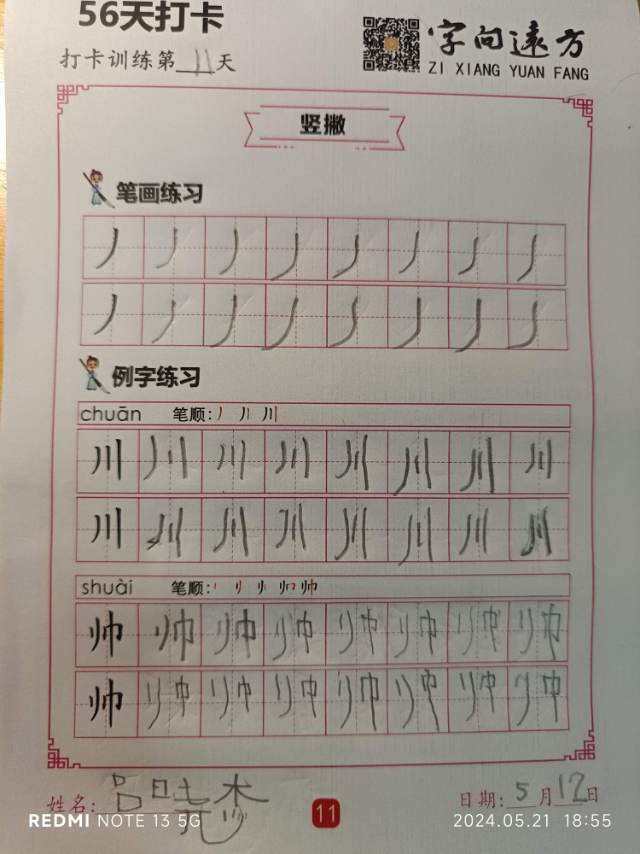 56天打卡
打卡训练第11天
字向远方
ZI XIANG YUAN FANG
竖撇
笔画练习
丿 丿 丿 丿 丿 丿 丿 丿
丿 丿 丿 丿 丿 丿 丿 丿
例字练习
chuān 笔顺:丿 丿丨 川
川 川 川 川 川 川 川 川
川 川 川 川 川 川 川 川
shuài 笔顺: 帅
帅 帅 帅 帅 帅 帅 帅 帅
帅 帅 帅 帅 帅 帅 帅 帅
姓名:吕
11
日期:5月12日
REDMI NOTE 13 5G
2024.05.21 18:55